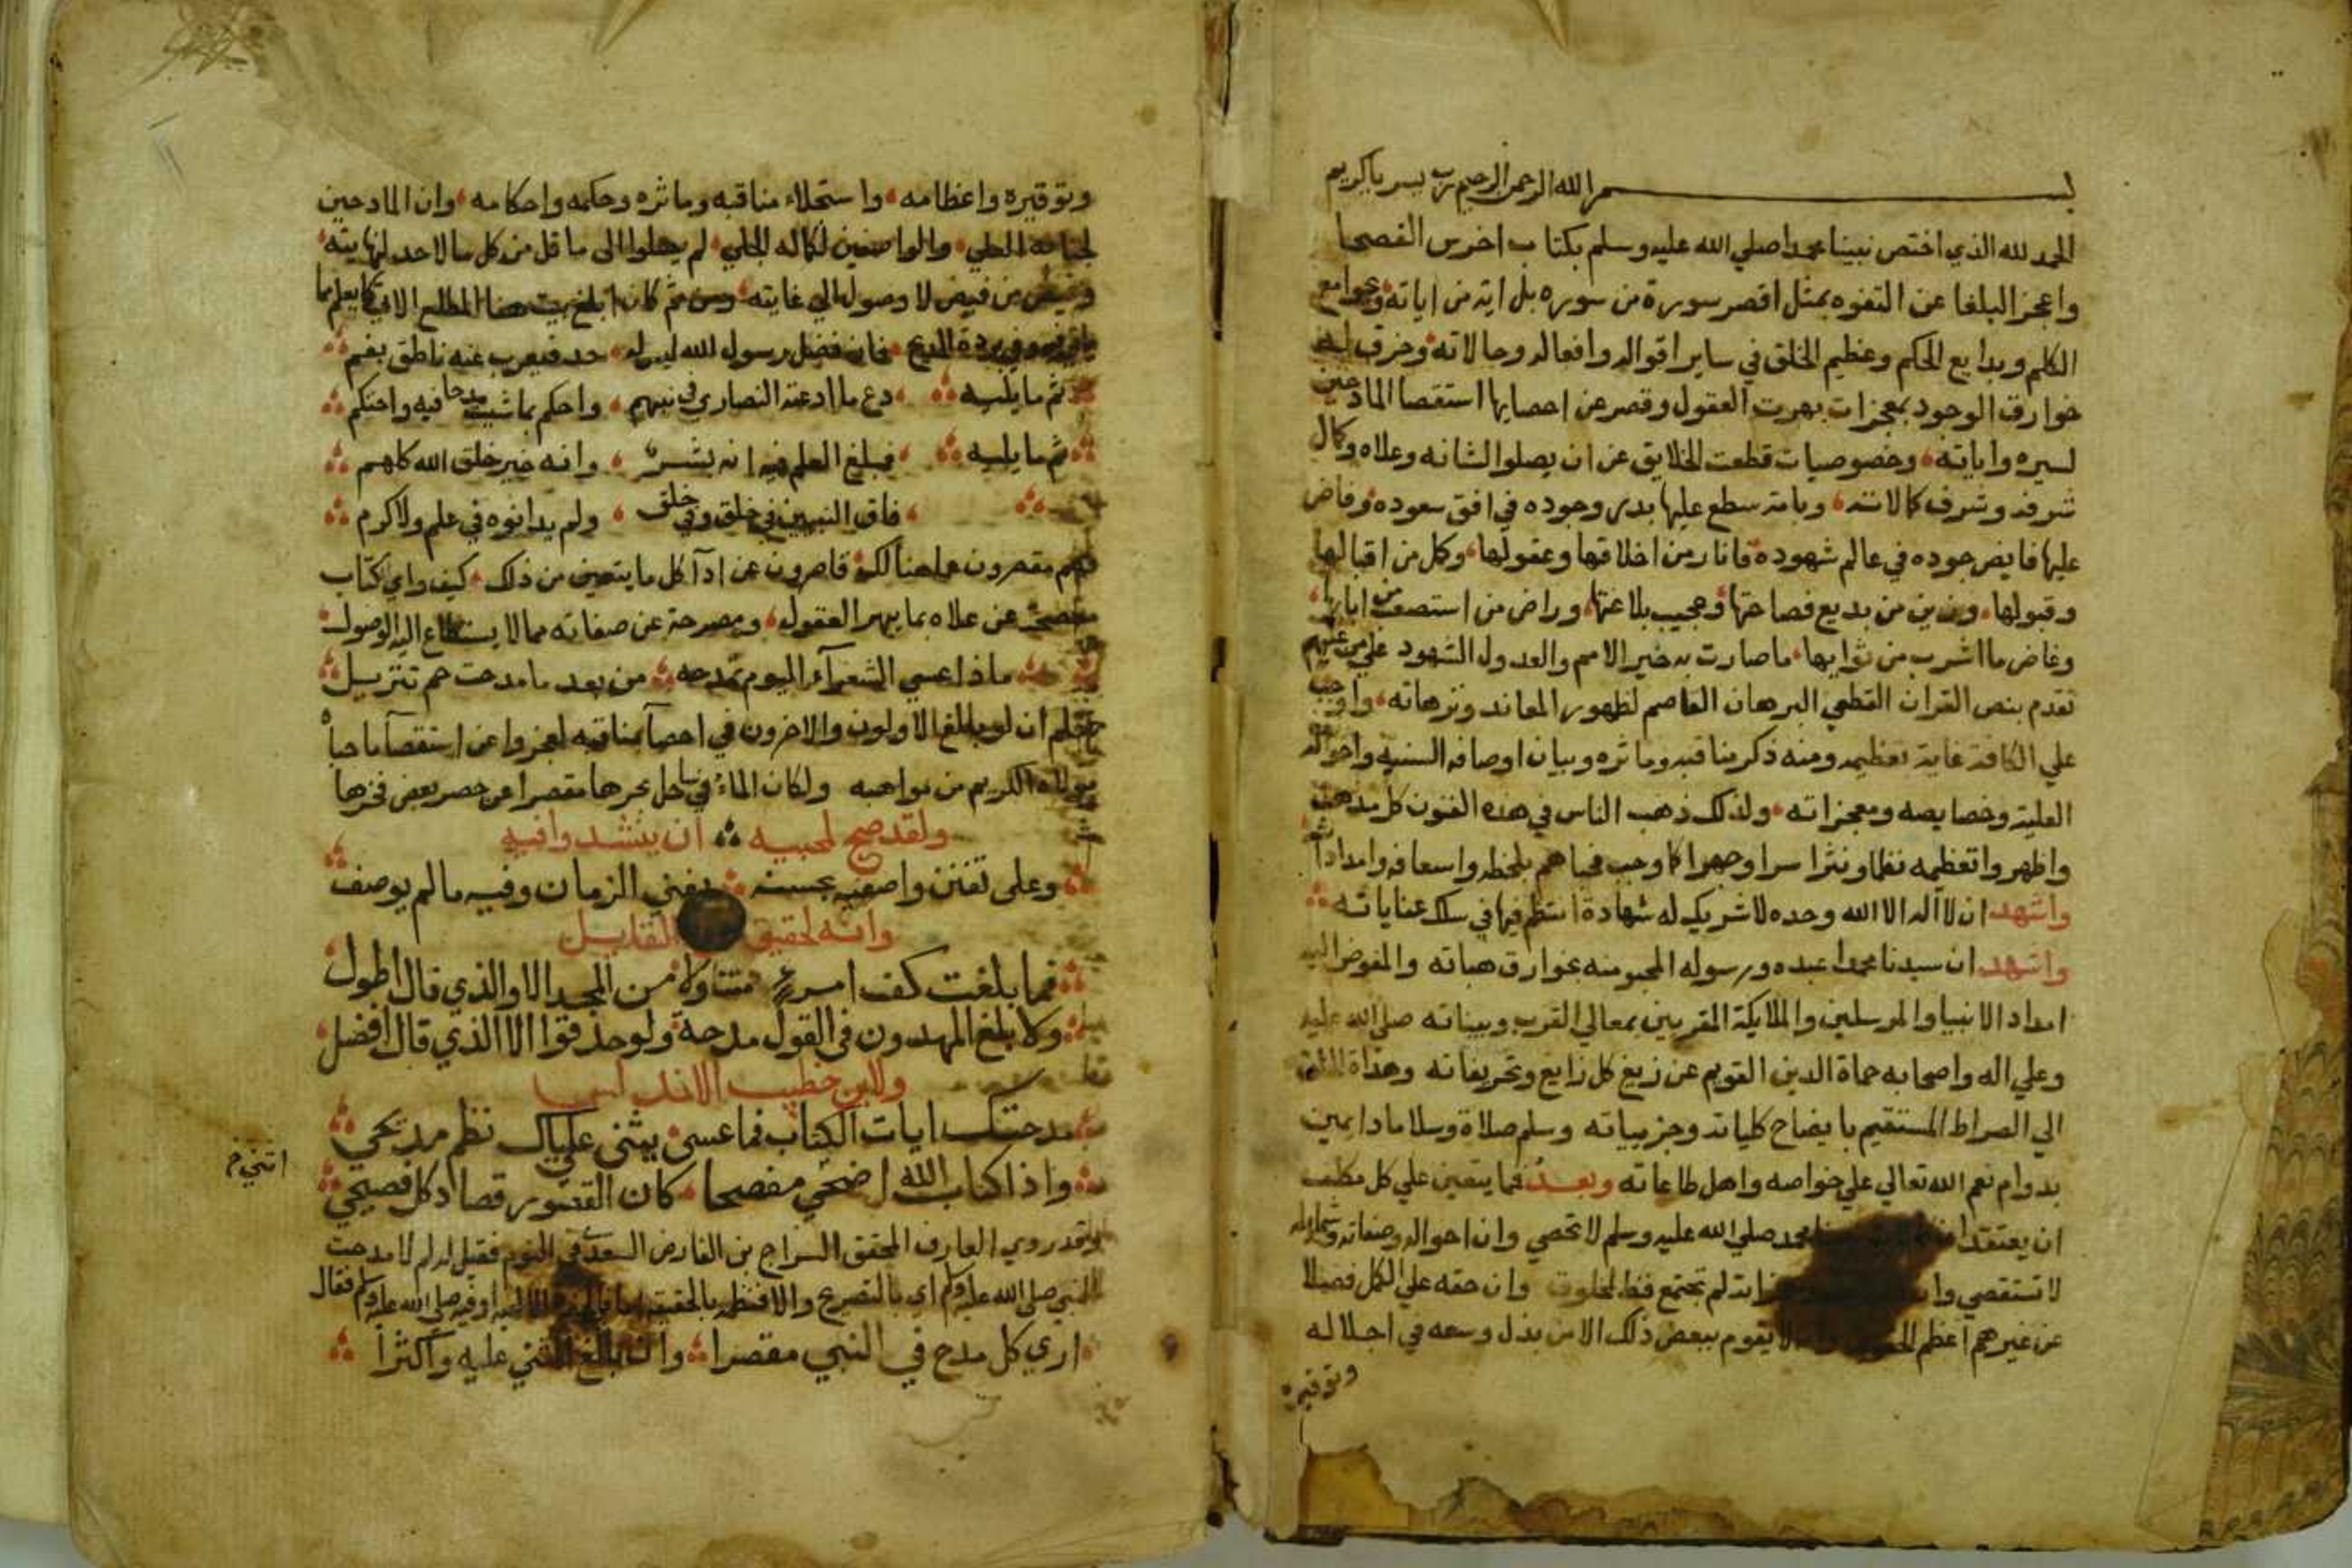 بسم الله الرحمن الرحيم رب يسر ياكريم
الحمد لله الذي اختص نبينا محمدا صلي الله عليه وسلم بكتاب اخرس الفصحا
واعجز البلغا عن التفوه بمثل اقصر سورة من سوره بل اية من اياته وجوامع
الكلم وبدايع الحكم وعظيم الخلق في ساير اقواله وافعاله وحالاته وخرق له
خوارق الوجود بمعجزات بهرت العقول وقصر عن احصايها استقصا المادحين
لسيره واياته وخصوصيات قطعت الخلايق عن ان يصلوا لشانه وعلاه وكال
شرفه وشرف كمالاته وبامة سطع عليها بدر وجوده في افق سعوده وفاض
عليها فايض جوده في عالم شهوده فانار من اخلاقها وعقولها وكل من اقبالها
وقبولها وزين من بديع فصاحتها وعجيب بلاغتها وراض من استصعب من ابايها
وغاض ما اشرب من ثوايها ما صارت به خير الامم والعدول الشهود علي من عليهم
تقدم بنص القران القطعي البرهان القاصم لظهور المعاند وترهاته واوجب
علي الكافة غاية تعظيمه ومنه ذكر مناقبه وماثره وبيان اوصافه السنيه واحواله
العلية وخصايصه ومعجزاته ولذلك ذهب الناس في هذه الفنون كل مذهب
واظهروا تعظيمه نظما ونثرا سرا وجهرا كما وجب فحباهم بلحظه واسعافه وامداداته
واشهد ان لا اله الا الله وحده لا شريك له شهادة انتظم فيها في سلك عناياته
واشهد ان سيدنا محمدا عبده ورسوله المحبو منه بخوارق هباته والمفوض اليه
امداد الانبيا والمرسلين والملايكة المقربين بمعالي القرب وبيناته صلي الله عليه
وعلي اله واصحابه حماة الدين القويم عن زيغ كل زايغ وتحريفاته وهداة
الي الصراط المستقيم بايضاح كلياته وجزيياته وسلم صلاة وسلاما دايمين
بدوام نعم الله تعالي علي خواصه واهل طاعاته وبعد فما يتعين علي كل مكلف
ان يعتقد ان محمد صلي الله عليه وسلم لا تحصي وان احواله وصفاته وشمايله
لا تستقصي وان لم تجتمع قط لمخلوق وان حقه علي الكل فضلا
عن غيرهم اعظم لا يقوم ببعض ذلك الا من بذل وسعه في اجلاله
وتوقيره
وتوقيره واعظامه واستجلاء مناقبه وماثره وحكمه واحكامه وان المادحين
لجنابه العلي والواصفين لكماله الجلي لم يصلوا الي ما قل من كل ما لا حد لنهايته
وغيض من فيض لا وصول الي غايته ومن ثم كان ابلغ بيت
في بردة المديح فان فضل رسول الله ليس له حد فيعرب عنه ناطق بفم
ثم ما يليه دع ما ادعته النصاري في نبيهم واحكم بما شيت مدحا فيه واحتكم
ثم ما يليه فمبلغ العلم فيه انه بشر وانه خير خلق الله كلهم
فاق النبيين في خلق وفي خلق ولم يدانوه في علم ولا كرم
فهم مقصرون عما هنالك قاصرون عن ادآ كل ما يتعين من ذلك كيف واي كتاب
مفصحة عن علاه بما يبهر العقول ومصرحة عن صفاته مما لا يستطاع اليه الوصول
ماذا عسي الشعرآء اليوم تمدحه من بعد ما مدحت حم تنزيل
فعلم ان لو بالغ الاولون والاخرون في احصآ مناقبه لعجزوا عن استقصآ ما حباه
مولاه الكريم من مواهبه ولكان الملم بساحل بحرها مقصرا عن حصر بعض فخرها
ولقد صح لمحبيه ان ينشدوا فيه
وعلى تفنن واصفيه بحسنه يفني الزمان وفيه ما لم يوصف
وانه لحقيق القايل
فما بلغت كف امرء متناولا من المجد الا والذي قال اطول
ولا بلغ المهدون في القول مدحة ولو حذقوا الا الذي قال افضل
ولابن خطيب الاندلس
مدحتك ايات الكتاب فما عسى يثني علياك نظم مديحي
واذا كتاب الله اضحي مفصحا كان القصور قصار كل فصيح
وقد روي العارف المحقق السراج بن الفارض السعدي في النوم فقيل له لم لا مدحت
النبي صلى الله عليه وسلم اي بالتصريح فقال
اري كل مدح في النبي مقصرا وان بالغ المثني عليه واكثرا